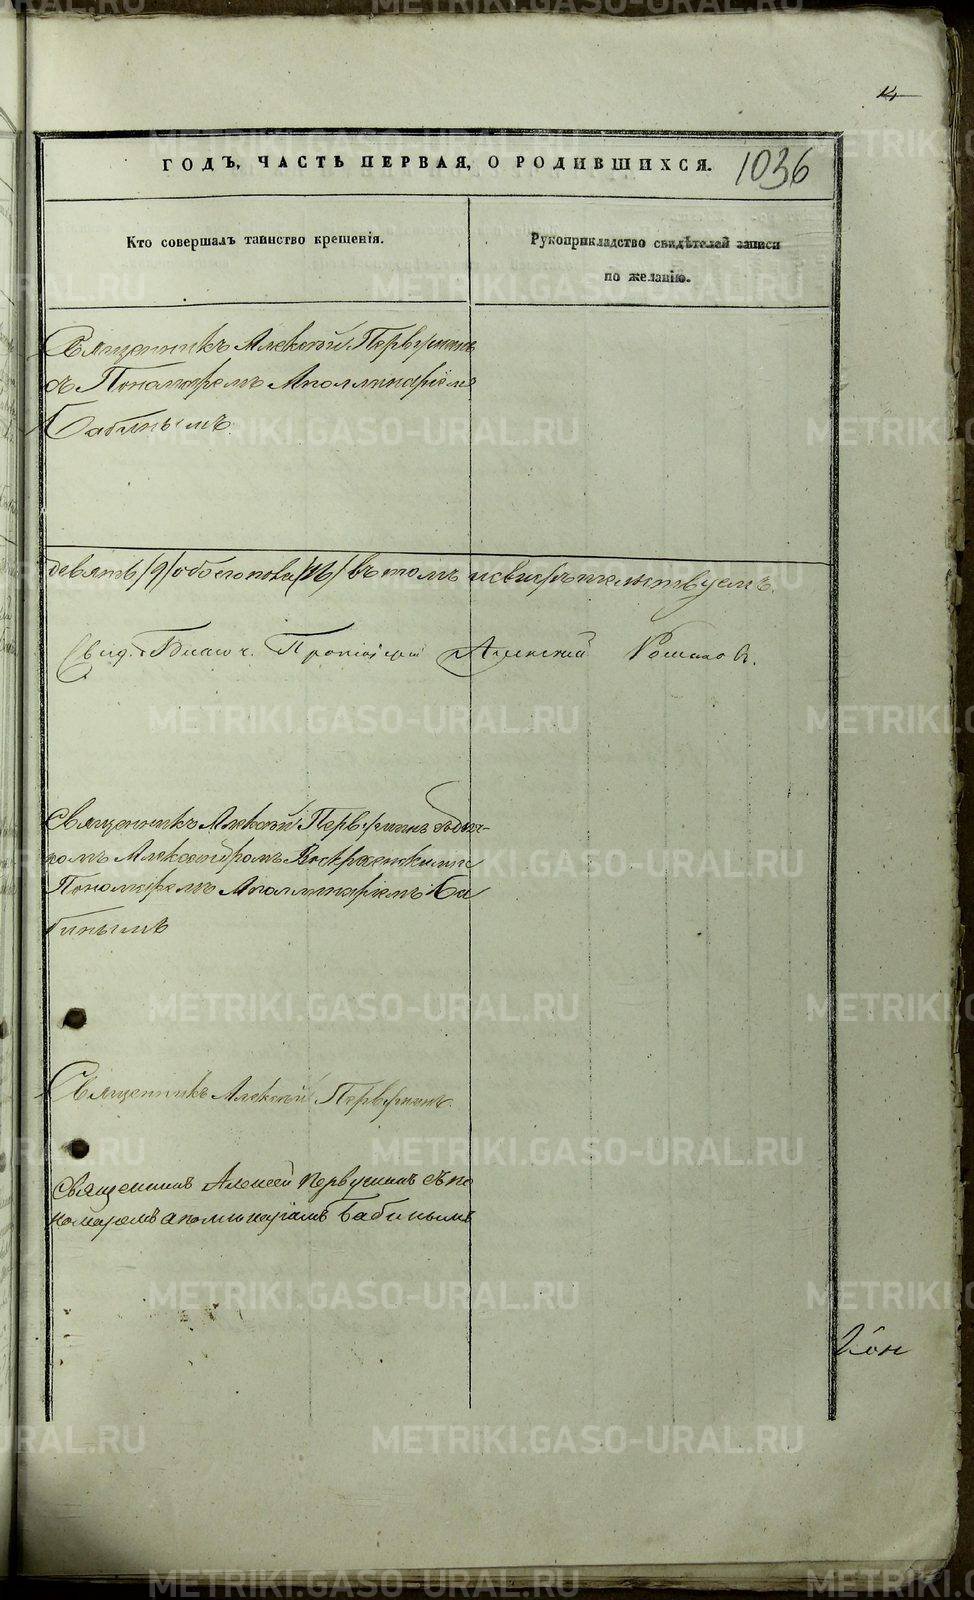 ГОДЪ, ЧАСТЬ ПЕРВАЯ, О РОДИВШИХСЯ. 1036
Кто совершалъ таинство крещенія.
Рукоприкладство свидѣтелей записи
по желанію.
Священникъ Алексѣй Первушинъ
съ Пономаремъ Аполлинаріемъ
Бабинымъ.
девять /9/ обоего пола /16/ въ томъ и свидѣтельствуемъ.
Свид. Благоч. Протоіерей Алексій
Священникъ Алексѣй Первушинъ съ дьяч-
комъ Александромъ Воскресенскимъ и
Пономаремъ Аполлинаріемъ Ба
бинымъ
Священникъ Алексѣй Первушинъ.
Священникъ Алексей Первушинъ съ по
номаремъ Аполинаріемъ Бабинымъ
METRIKI.GASO-URAL.RU